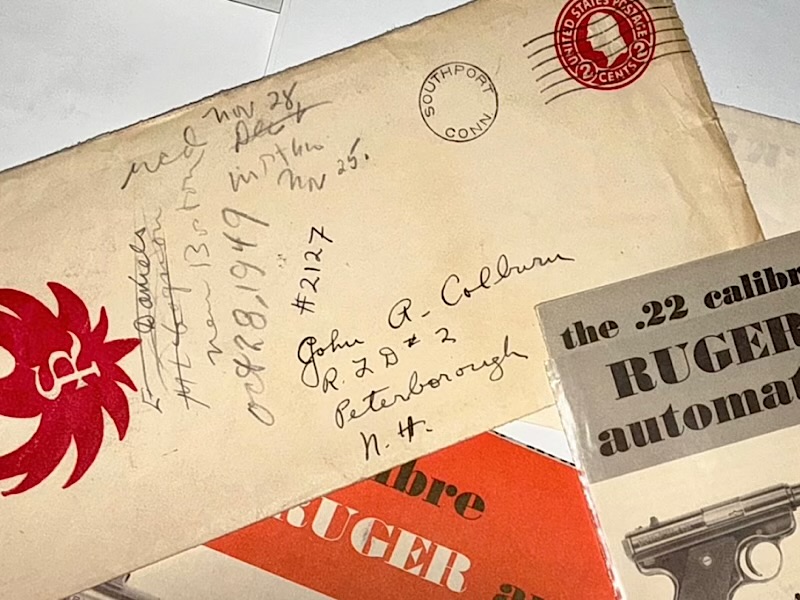 UNITED STATES POSTAGE
2 CENTS 2
SOUTHPORT
CONN
recd Nov 28,
Dec 1
Nov 25.
E Daniels
New Boston
Oct 28, 1949
#2127
John A. Colburn
R.F.D # 2
Peterborough
N. H.
SR
the .22 calibr
RUGER
automat
ibre
RUGER
au